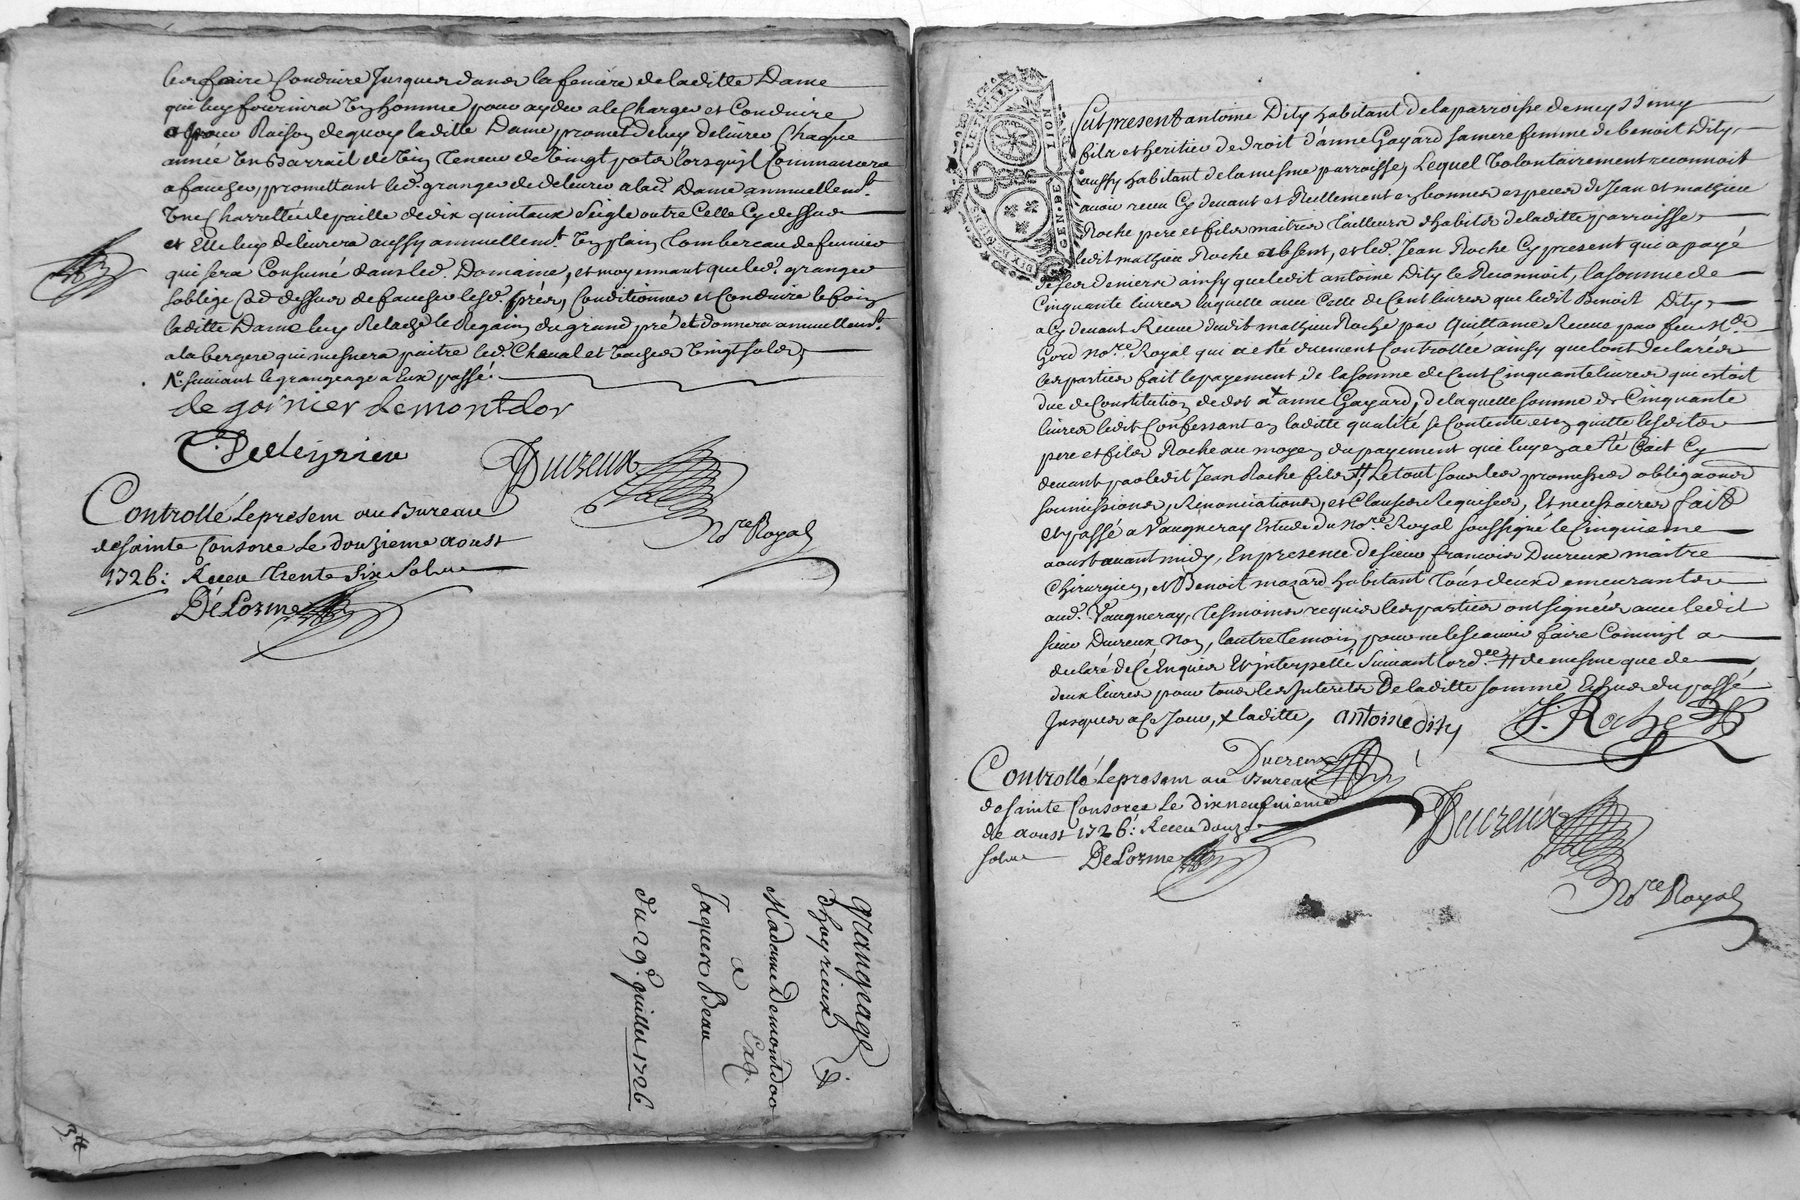 les faire Conduire Jusques dans la feniere de laditte Dame
qui luy fournira un homme pour ayder a le Charger et Conduire
Raison de quoy laditte Dame promet de luy delivrer Chaque
année un Barrail de vin teneur de vingt pots lorsqu'il Commancera
a faucher, promettant led. granger de delivrer a lad. Dame annuellemt.
une Charrettée de paille de dix quintaux Seigle outre Celle Cy dessus
et Elle luy delivrera aussy annuellemt. un plain Tombereau de fumier
qui sera Consumé dans led. Domaine, et moyennant que led. granger
s'oblige Cy dessus de faucher lesd. prés, Conditionner et Conduire le foin
laditte Dame luy Relache le Regain du grand pré et donnera annuellemt.
a la bergere qui mesnera paitre led. Cheval et vaches vingt sols,
suivant le grangeage a Eux passé.
de garnier demontdor
Ducreux
Nore Royal
Controllé le present au Bureau
de Sainte Consorce le douzieme aoust
1726: Receu trente six sols
DeLorme
grangeage
dhoyrieux
Madame Demontdor
a
Jaques Beau
Exq.
du 29e. Juillet 1726
3tt
GEN. DE LION
Fut present antoine Dity habitant de la parroisse de meyssimy
fils et heritier de droit d'anne Gayard sa mere femme de benoit Dity,
aussy habitant de la mesme parroisse, Lequel volontairement reconnoit
avoir receu Cy devant et Reellement en bonnes especes de Jean et mathieu
Roche pere et fils maitres Tailleurs d'habits de laditte parroisse,
ledit mathieu Roche absent, et led. Jean Roche Cy present qui a payé
de ses deniers ainsy que ledit antoine Dity le Reconnoit, la somme de
Cinquante livres laquelle avec Celle de Cent livres que ledit Benoit Dity,
a Cy devant Receue dudit mathieu Roche par Quittance Receue par feu Me.
Gord nore. Royal qui a esté duement Controllée ainsy que l'ont declaré
les parties fait le payement de la somme de Cent Cinquante livres qui estoit
due de Constitution de dot a x anne Gayard, de laquelle somme de Cinquante
livres ledit Confessant en laditte qualité se Contente et en quitte lesdits
pere et fils Roche au moyen du payement que luy en a eté fait Cy
devant par ledit Jean Roche fils # Le tout sous les promesses obligaons
soumissions, Renonciations, et Clauses Requises, Et necessaires fait
et passé a Vaugneray Estude du nore Royal soussigné le Cinquieme
aoust avant midy, En presence de sieur francois Ducreux maitre
Chirurgien, et Benoit mazard habitant tous deux demeurants
aud. Vaugneray, tesmoins requis les parties ont signées avec ledit
sieur Ducreux Non, l'autre temoin pour ne le scavoir faire Comm'il a
declaré de Ce Enquis Et interpellé suivant l'ordce. # de mesme que de
deux livres pour tous les Interets De laditte somme Echus du passé
Jusques a Ce Jour, x laditte, antoine dity J. Roche
Ducreux
Controllé le present au Bureau
de Sainte Consorce le dix neufvieme
de aoust 1726: Receu douze
sols DeLorme
Ducreux
Nore Royal